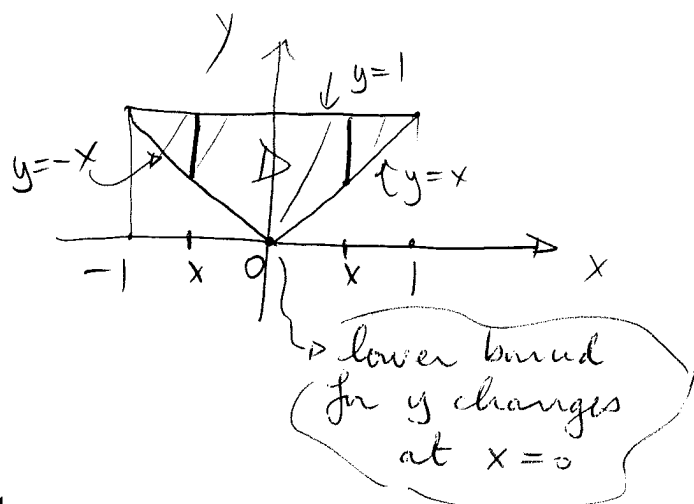 y
y=1
y=-x
D
y=x
-1 x 0 x 1 x
lower bound
for y changes
at x=0